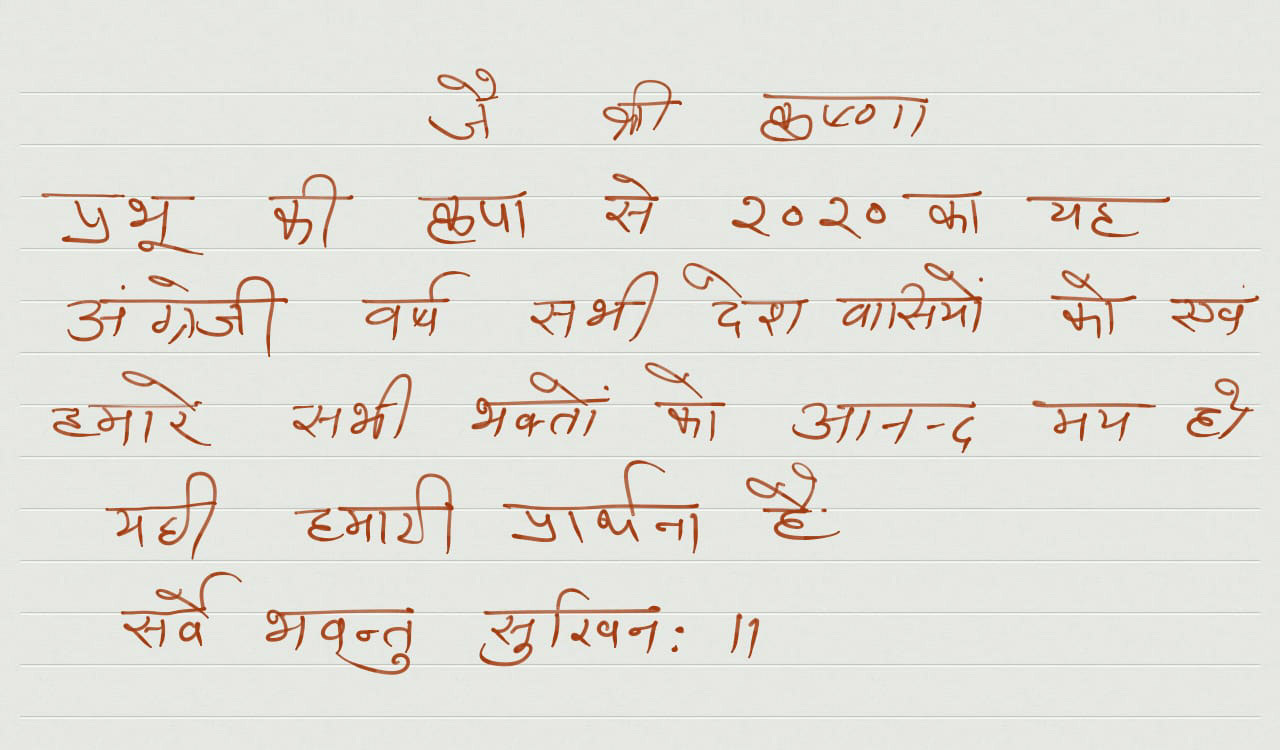 जै श्री कृष्णा
प्रभू की कृपा से २०२० का यह
अंग्रेजी वर्ष सभी देश वासियों को एवं
हमारे सभी भक्तों को आनन्द मय हो
यही हमारी प्रार्थना है
सर्वे भवन्तु सुखिन: ॥